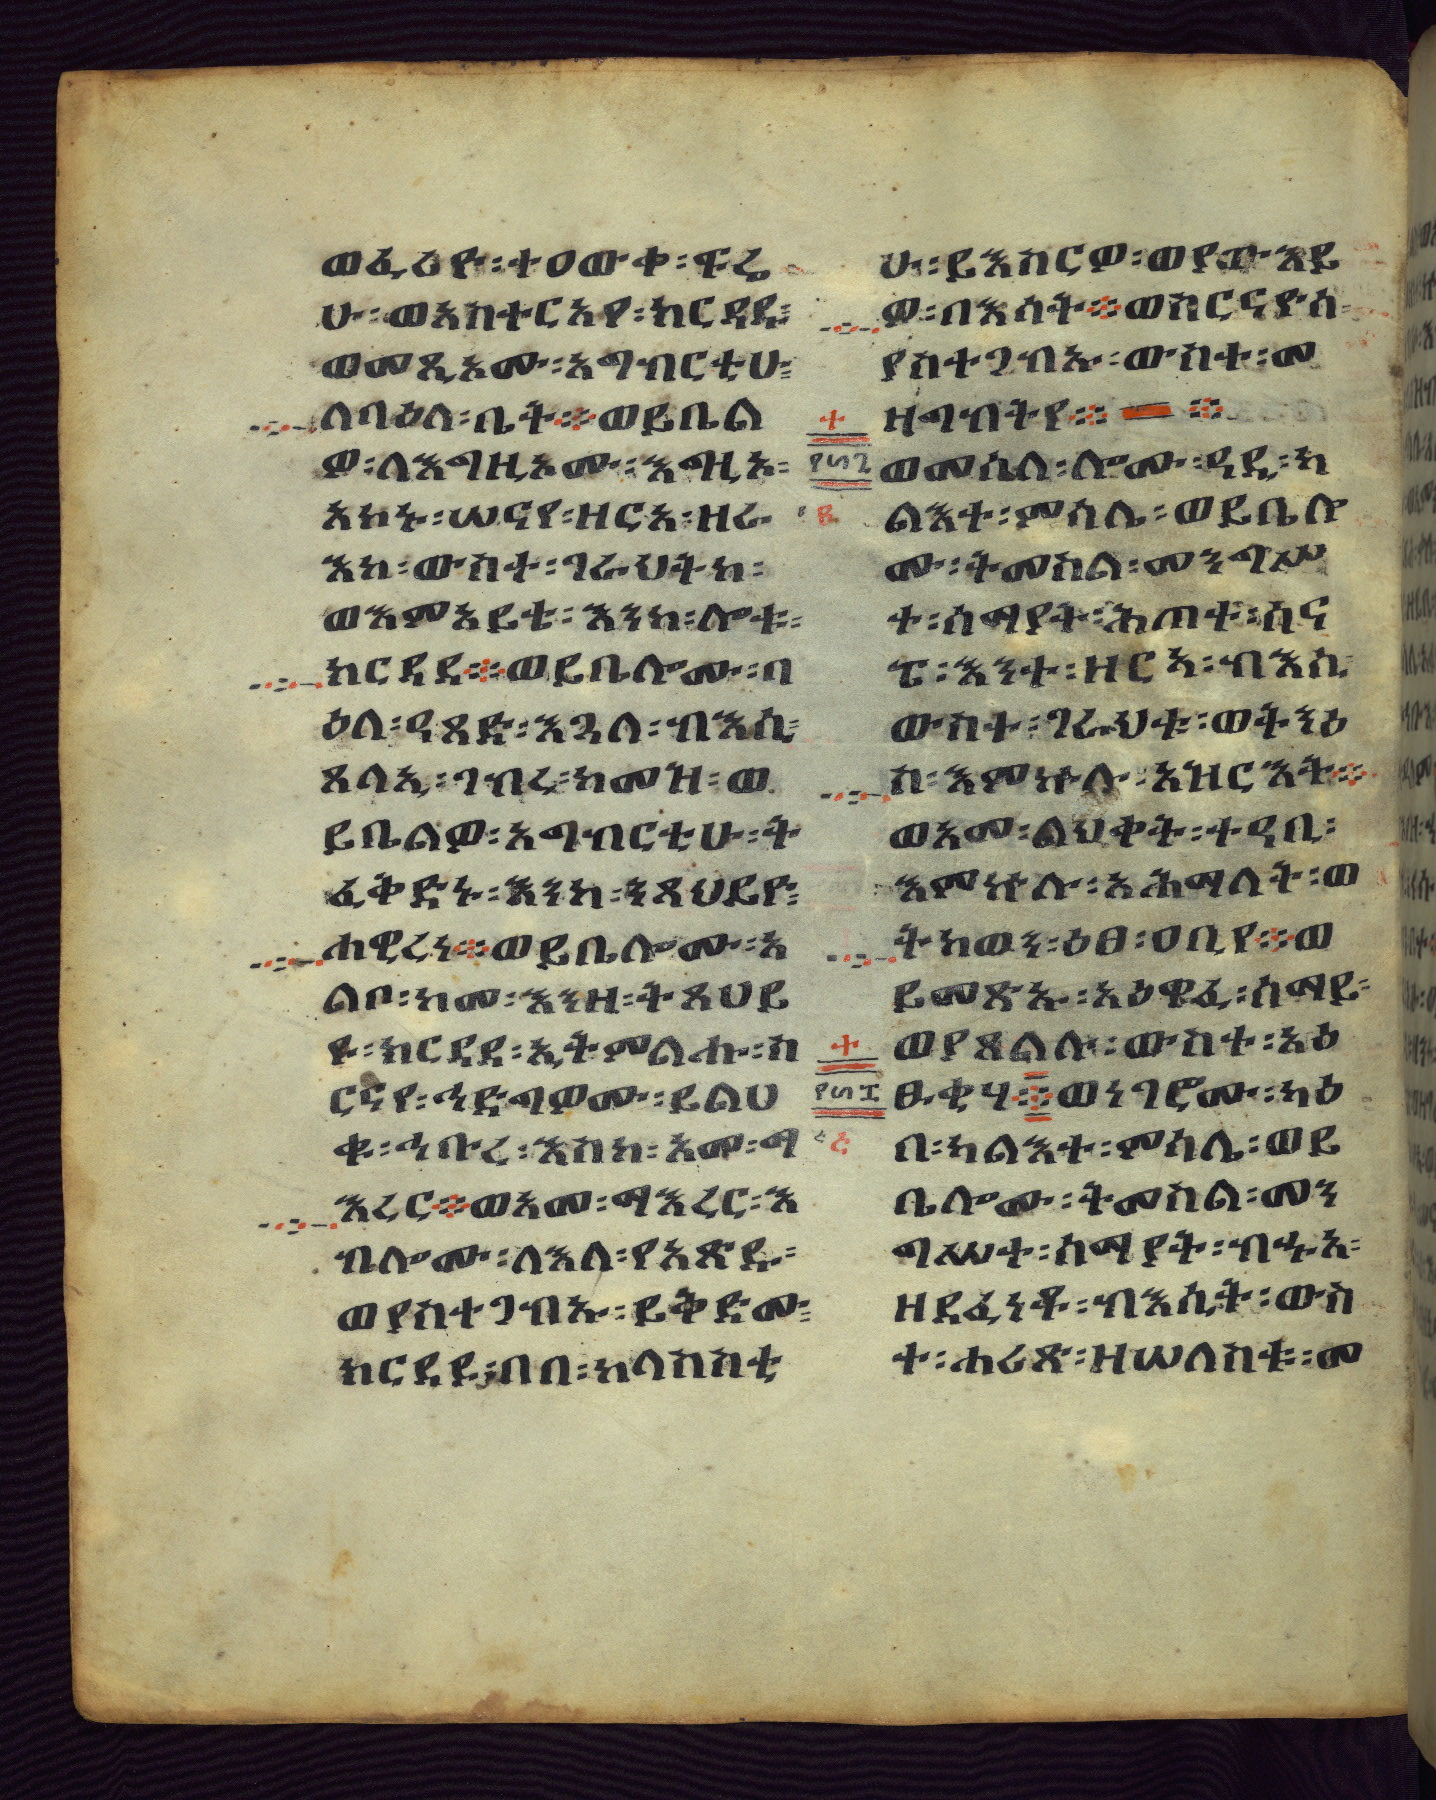 ወፈሪዮ፡ተዐውቀ፡ፍሬ
ሁ፡ወአስተርአየ፡ክርዳዱ፡
ወመጺኦሙ፡አግብርቲሁ፡
ለባዕለ፡ቤት፨ወይቤል
ዎ፡ለእግዚኦሙ፡እግዚኦ፡
አኮኑ፡ሠናየ፡ዘርአ፡ዘራ
እከ፡ውስተ፡ገራህትከ፡
ወእምአይቴ፡እንከ፡ሎቱ፡
ክርዳደ፨ወይቤሎሙ፡ባ
ዕለ፡ዳጸድ፡እጓለ፡ብእሲ፡
ጸላኢ፡ገብረ፡ከመዝ፡ወ
ይቤልዎ፡አግብርቲሁ፡ት
ፈቅድኑ፡እንከ፡ንጻህይዮ፡
ሐዊረነ፨ወይቤሎሙ፡አ
ልቦ፡ከመ፡እንዘ፡ትጻህይ
ዩ፡ክርዳደ፡ኢትምልሑ፡ስ
ርናየ፡ኅድግዎሙ፡ይልህ
ቁ፡ኅቡረ፡እስከ፡አመ፡ማ
እረር፨ወአመ፡ማእረር፡እ
ብሎሙ፡ለእለ፡የአጽዱ፡
ወያስተጋብኡ፡ይቅድሙ፡
ክርዳደ፡በበ፡ከላስስቲ
ሁ፡ይእስርዎ፡ወያውእይ
ዎ፡በእሳት፨ወስርናዮሰ፡
ያስተጋብኡ፡ውስተ፡መ
ዝግብትየ፨ ፨
ወመሰለ፡ሎሙ፡ዳዲ፡ካ
ልእተ፡ምሳሌ፡ወይቤሎ
ሙ፡ትመስል፡መንግሥ
ተ፡ሰማያት፡ሕጠተ፡ስና
ፔ፡እንተ፡ዘርኣ፡ብእሲ፡
ውስተ፡ገራህቱ፡ወትንዕ
ስ፡እምኵሉ፡አዝርእት፨
ወአመ፡ልህቀት፡ተዓቢ፡
እምኵሉ፡አሕማላት፡ወ
ትከውን፡ዕፀ፡ዐቢየ፨ወ
ይመጽኡ፡አዕዋፈ፡ሰማይ፡
ወያጸልሉ፡ውስተ፡አዕ
ፁቂሃ፨ወነገሮሙ፡ካዕ
በ፡ካልእተ፡ምሳሌ፡ወይ
ቤሎሙ፡ትመስል፡መን
ግሥተ፡ሰማያት፡ብሑአ፡
ዘደፈነቶ፡ብእሲት፡ውስ
ተ፡ሐሪጽ፡ዘሠለስቱ፡መ